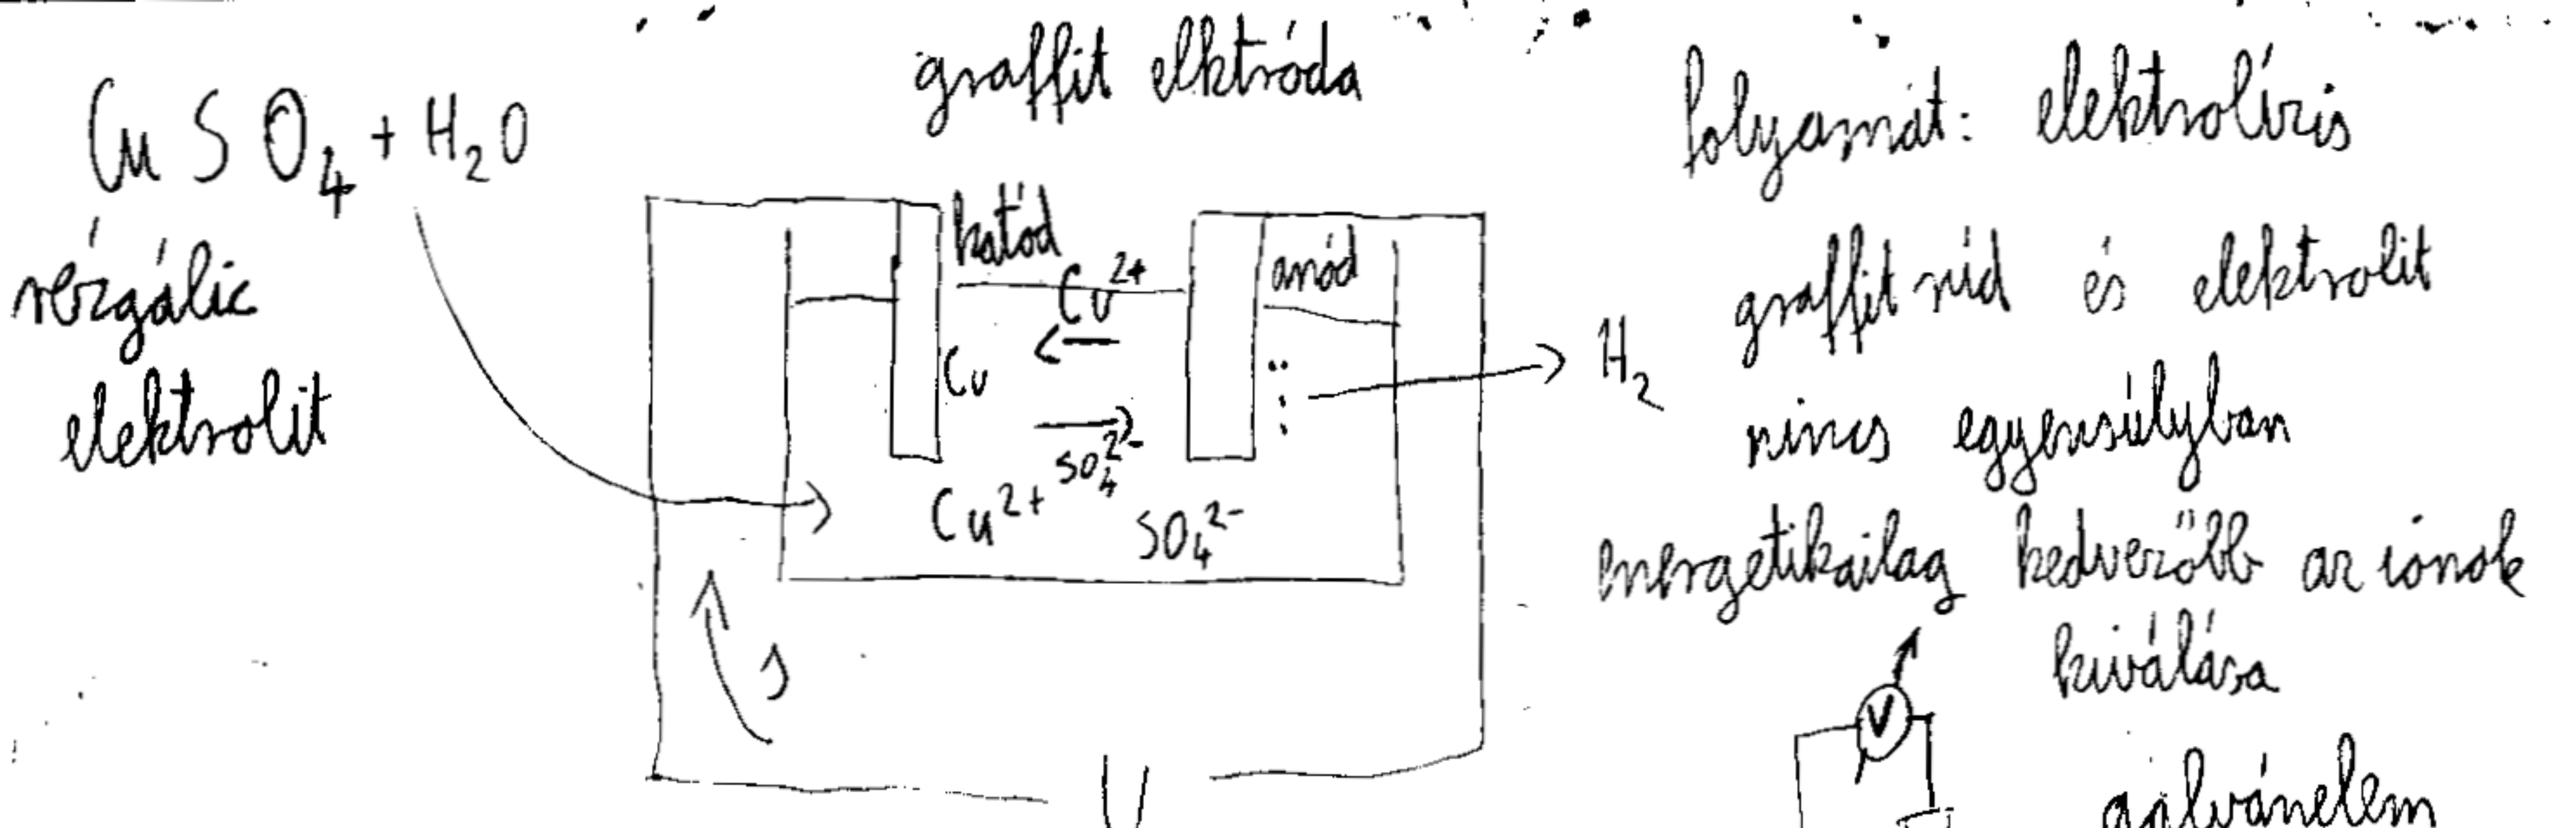 graffit elktróda
CuSO₄ + H₂O
rézgálic
elektrolit
katód
anód
Cu²⁺
Cu
SO₄²⁻
Cu²⁺
SO₄²⁻
H₂
U
folyamat: elektrolízis
graffit rúd és elektrolit
nincs egyensúlyban
energetikailag kedvezőbb az ionok
kiválása
V
galvánelem